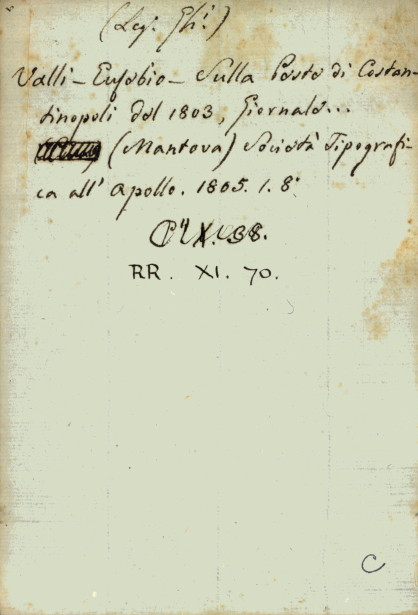 (Leg. Ghi.)
Valli - Eusebio - Sulla Peste di Costan-
tinopoli del 1803, Giornale...
(Mantova) Società Tipografi-
ca all' Apollo. 1805. 1. 8°
X. 38.
RR. XI. 70.
C